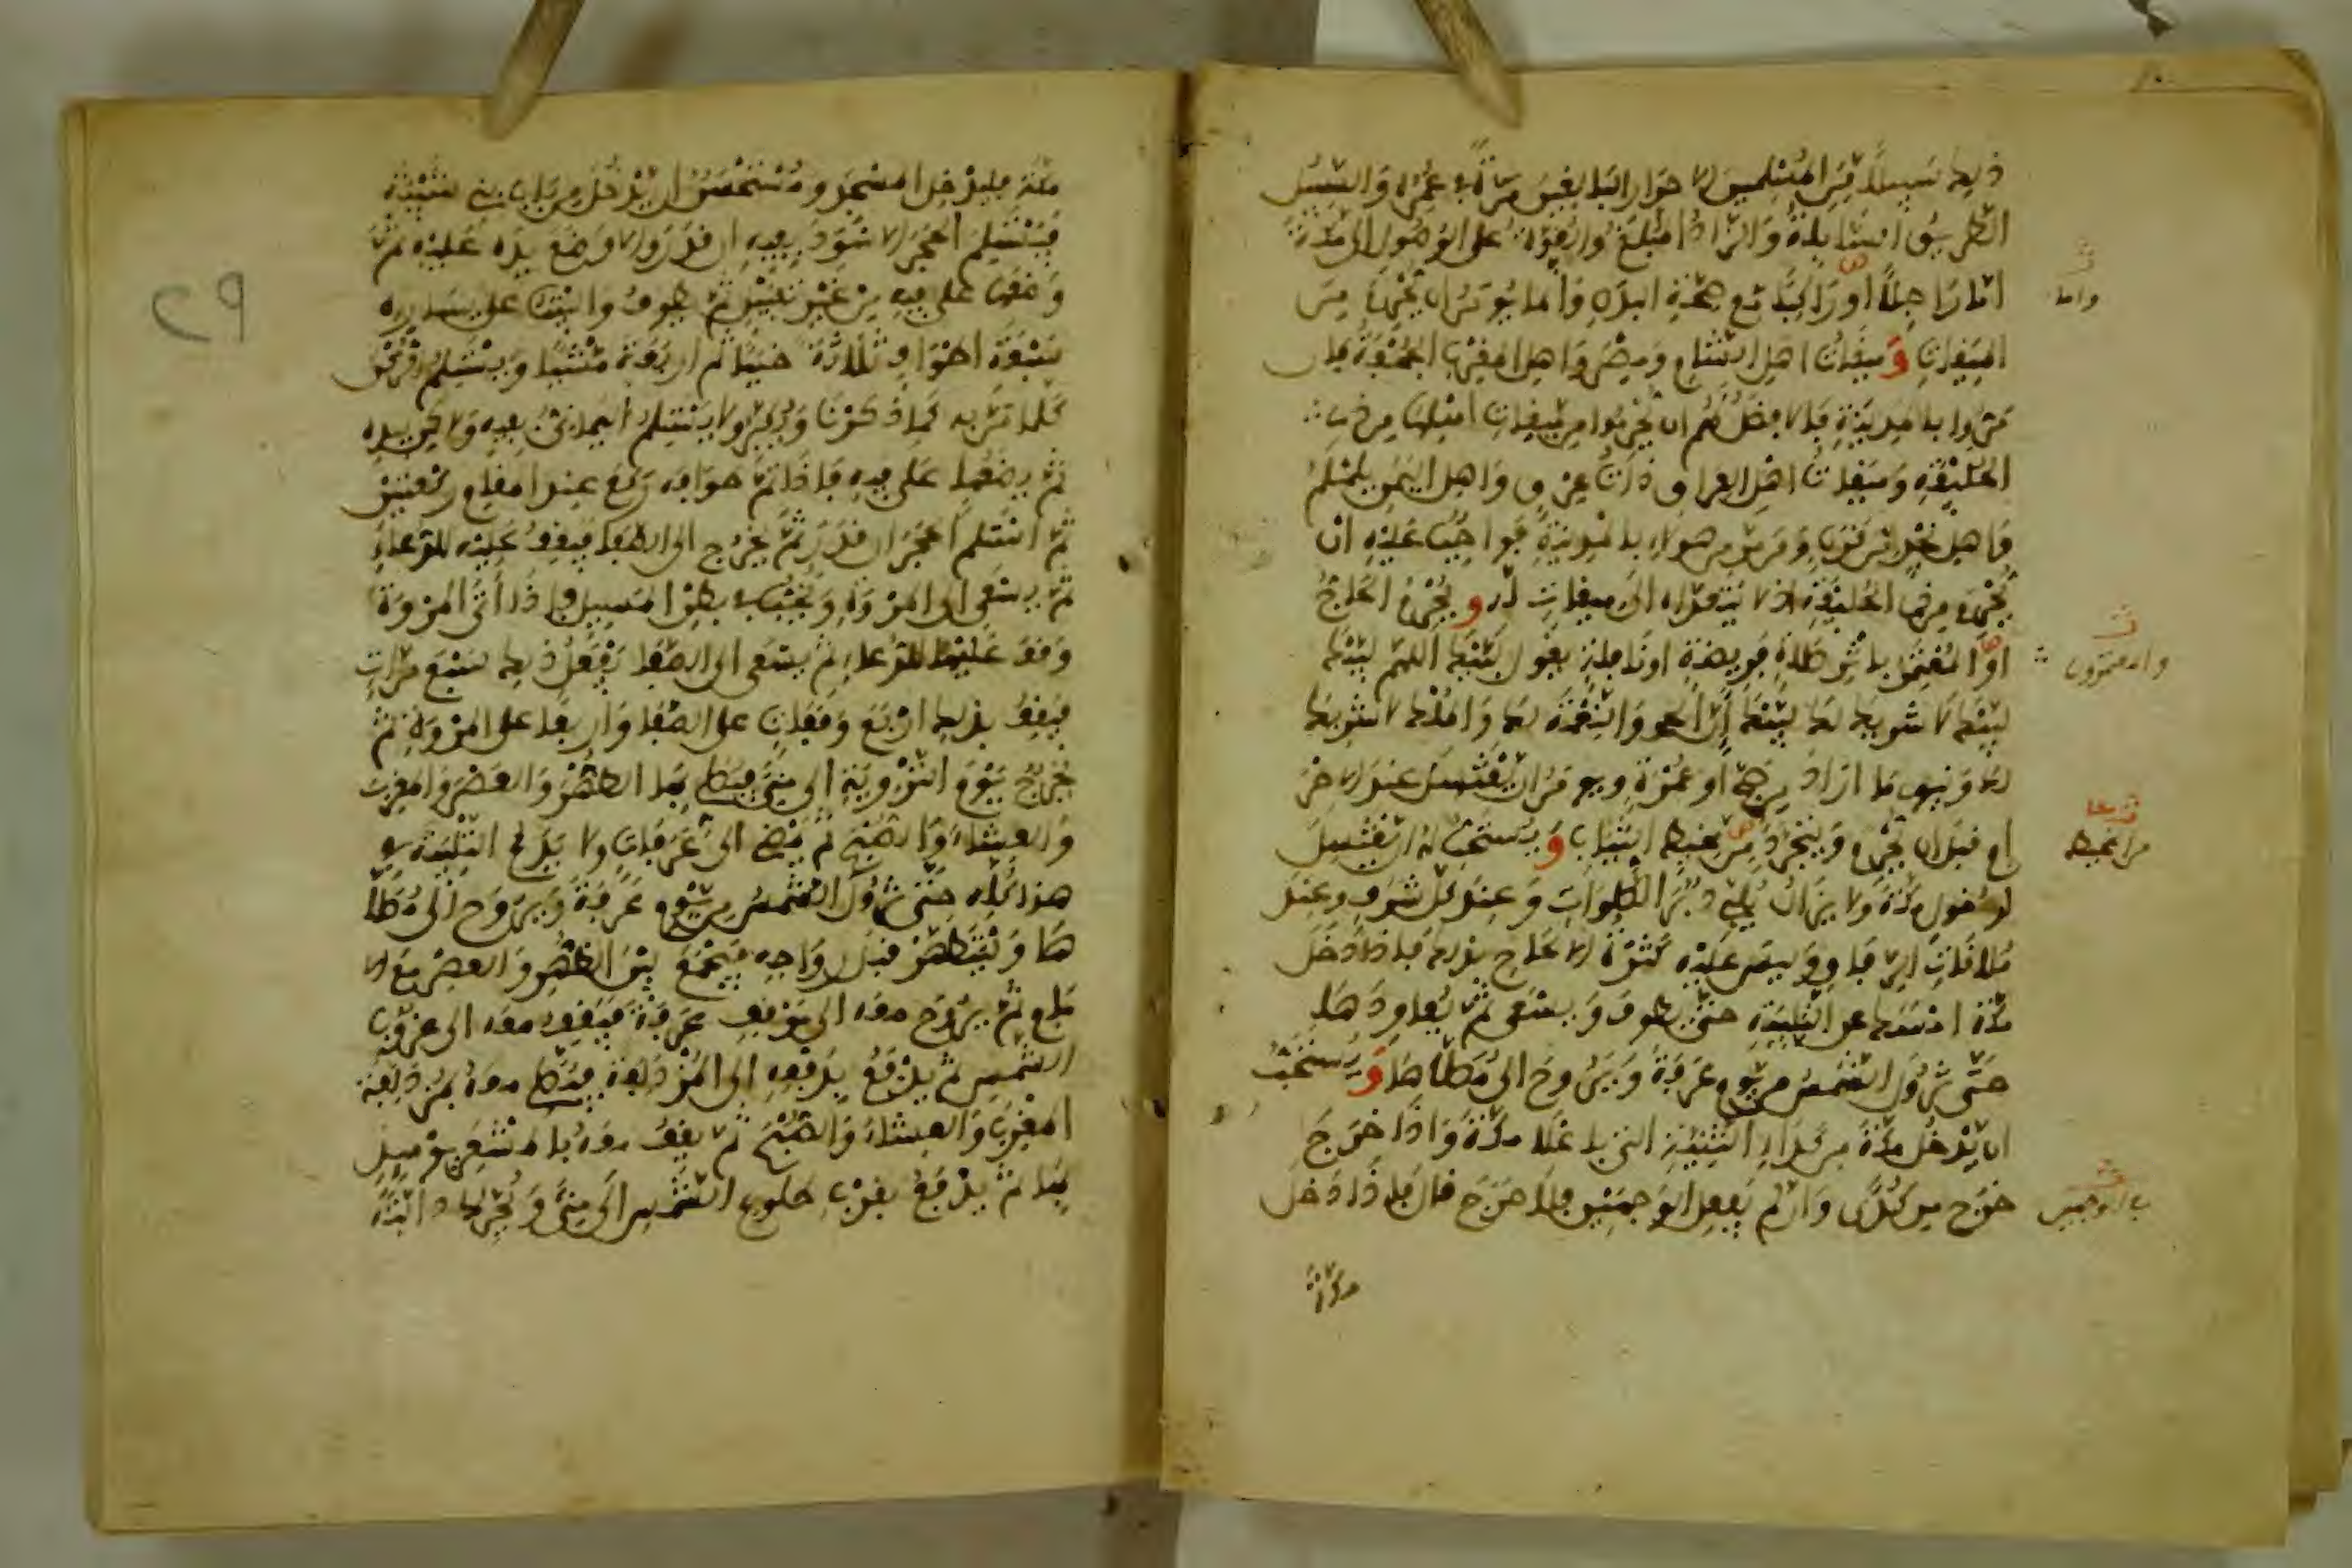 ذلك سبيلا من المسلمين الاحرار البالغين مرة في عمره والسبيل
الطريق السابلة والزاد المبلغ والقوة على الوصول الى مكة
اما راجلا او راكبا مع صحة البدن وانما يومر ان يحرم من
واما
الميقات وميقات اهل الشام ومصر واهل المغرب الجحفة فان
مروا بالمدينة فالافضل لهم ان يحرموا من ميقات اهلها من ذي
الحليفة وميقات اهل العراق ذات عرق واهل اليمن يلملم
واهل نجد من قرن ومن مر من هؤلاء بالمدينة فواجب عليه ان
يحرم من ذي الحليفة اذ لا يتعداه الى ميقات له ويحرم الحاج
او المعتمر باثر صلاة فريضة او نافلة يقول لبيك اللهم لبيك
والمعتمر
لبيك لا شريك لك لبيك ان الحمد والنعمة لك والملك لا شريك
لك وينوي ما اراد من حج او عمرة ويومر ان يغتسل عند الاحرا
م قبل ان يحرم ويتجرد من مخيط الثياب ويستحب له ان يغتسل
من المخيط
لدخول مكة ولا يزال يلبي دبر الصلوات وعند كل شرف وعند
ملاقات الرفاق وليس عليه كثرة الالحاح بذلك فاذا دخل
مكة امسك عن التلبية حتى يطوف ويسعى ثم يعاودها
حتى تزول الشمس من يوم عرفة ويروح الى مصلاها ويستحب
ان يدخل مكة من كداء الثنية التي باعلا مكة واذا خرج
خرج من كدى وان لم يفعل في الوجهين فلا حرج قال فاذا دخل
في الوجهين
مكة
مكة فليدخل المسجد ومستحسن ان يدخل من باب بني شيبة
فيستلم الحجر الاسود بفيه ان قدر والا وضع يده عليه ثم
وضعها على فيه من غير تقبيل ثم يطوف والبيت على يساره
سبعة اطواف ثلاثة خببا ثم اربعة مشيا ويستلم الركن
كلما مر به كما ذكرنا ويكبر ولا يستلم اليماني بفيه ولكن بيده
ثم يضعها على فيه فاذا تم طوافه ركع عند المقام ركعتين
ثم استلم الحجر ان قدر ثم يخرج الى الصفا فيقف عليه للدعاء
ثم يسعى الى المروة ويخب في بطن المسيل فاذا اتى المروة
وقف عليها للدعاء ثم يسعى الى الصفا يفعل ذلك سبع مرات
فيقف بذلك اربع وقفات على الصفا واربعا على المروة ثم
يخرج يوم التروية الى منى فيصلي بها الظهر والعصر والمغرب
والعشاء والصبح ثم يمضي الى عرفات ولا يدع التلبية في
هذا كله حتى تزول الشمس من يوم عرفة ويروح الى مصلا
ها وليتطهر قبل رواحه فيجمع بين الظهر والعصر مع الا
مام ثم يروح معه الى موقف عرفة فيقف معه الى غروب
الشمس ثم يدفع بدفعه الى المزدلفة فيصلي معه بمزدلفة
المغرب والعشاء والصبح ثم يقف معه بالمشعر يومئذ
بها ثم يدفع بقرب طلوع الشمس الى منى ويحرك دابته
29